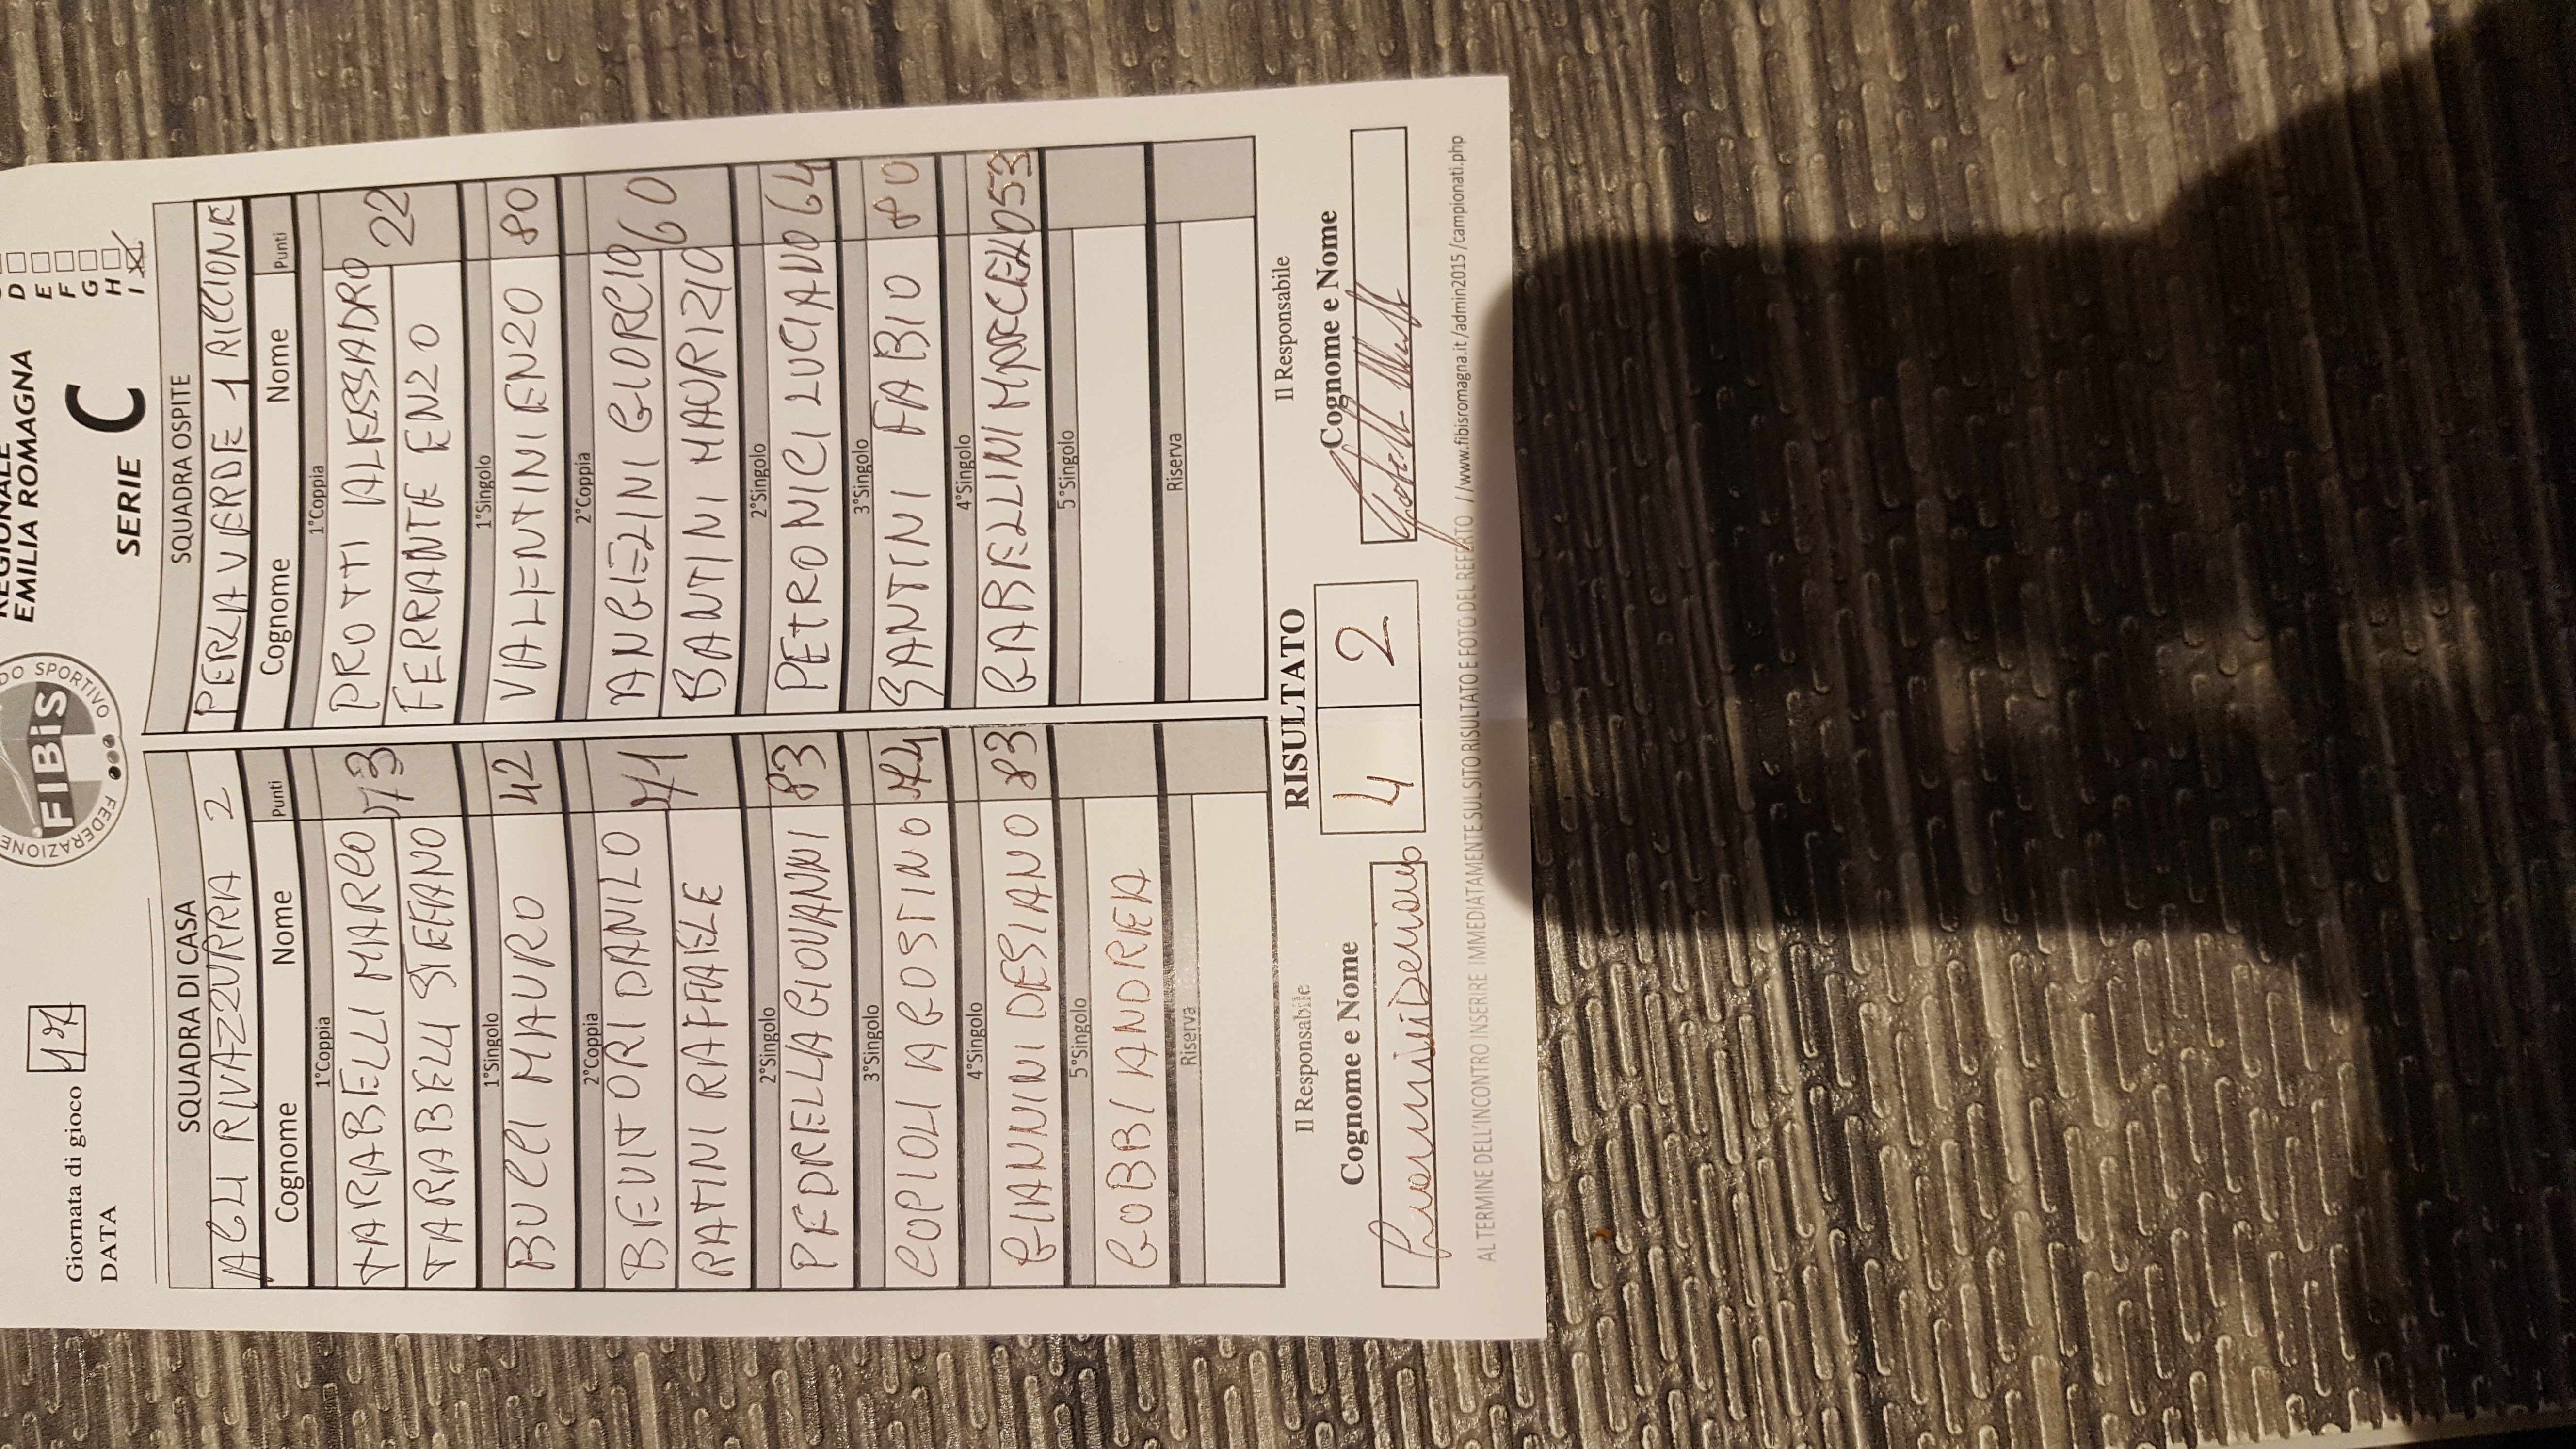 REGIONALE
EMILIA ROMAGNA
SERIE C
D
E
F
G
H
I
FEDERAZIONE
DO SPORTIVO
FIBiS
Giornata di gioco 17
DATA
SQUADRA DI CASA
AGLI RIVAZZURRA 2
Cognome Nome Punti
1°Coppia
TARABELLI MARCO 73
TARABELLI STEFANO
1°Singolo
BUCCI MAURO 42
2°Coppia
BEVITORI DANILO 71
RATINI RAFFAELE
2°Singolo
PEDRELLA GIOVANNI 83
3°Singolo
COPIOLI AGOSTINO 74
4°Singolo
GIANNINI DESIANO 83
5°Singolo
GOBBI ANDREA
Riserva
SQUADRA OSPITE
PERLA VERDE 1 RICCIONE
Cognome Nome Punti
1°Coppia
PROTTI ALESSADRO 22
FERRANTE ENZO
1°Singolo
VALENTINI ENZO 80
2°Coppia
ANGELINI GIORGIO 60
BANTINI MAURIZIO
2°Singolo
PETRONICI LUCIANO 64
3°Singolo
SANTINI FABIO 80
4°Singolo
GABELLINI MARCELLO 53
5°Singolo
Riserva
Il Responsabile
RISULTATO
Il Responsabile
Cognome e Nome
4 2
Cognome e Nome
AL TERMINE DELL'INCONTRO INSERIRE IMMEDIATAMENTE SUL SITO RISULTATO E FOTO DEL REFERTO //www.fibisromagna.it /admin2015 /campionati.php